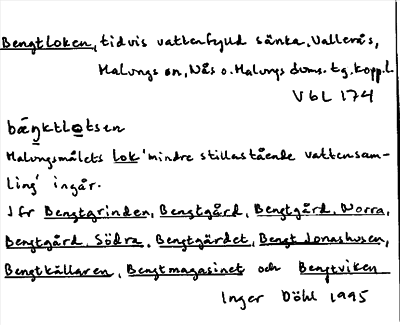 Bengtloken, tidvis vattenfylld sänka. Vallerås,
Malungs sn, Nås o. Malungs doms. tg. Kopp. l.
VbL 174
bæŋktlo̱tsen
Malungsmålets lok 'mindre stillastående vattensam-
ling' ingår.
Jfr Bengtgrinden, Bengtgård, Bengtgård, Norra,
Bengtgård, Södra, Bengtgärdet, Bengt Jonashusen,
Bengtkällaren, Bengtmagasinet och Bengtviken
Inger Döhl 1995